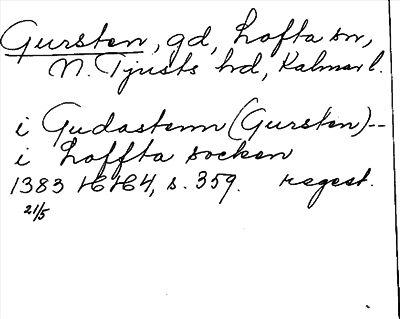 Gursten, gd, Lofta sn,
N. Tjusts hd, Kalmar l.
i Gudastenn (Gursten) --
i Loffta socken
1383 HH4, s. 359. regest.
21/5